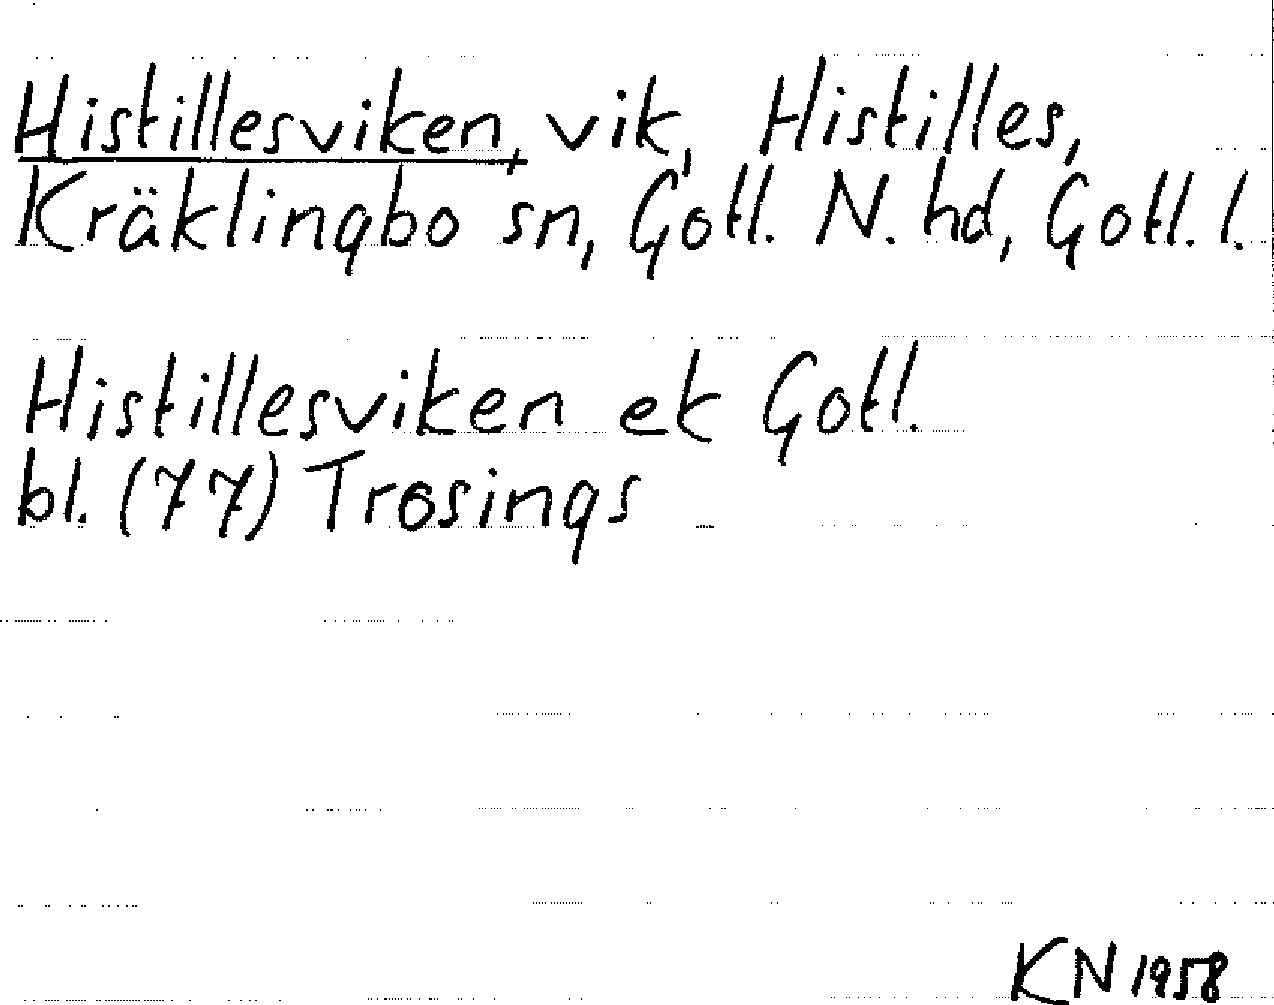 Histillesviken, vik, Histilles,
Kräklingbo sn, Gotl. N. hd, Gotl. l.
Histillesviken ek Gotl.
bl. (77) Trosings
KN 1958